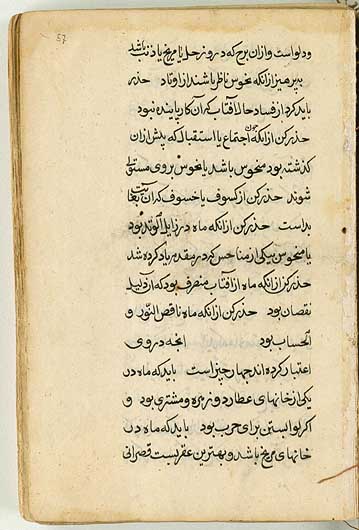 57
ودلواست وازان برج که درو زحل یا مریخ یا ذنب باشد
بپرهیز از انکه نحوس ناظر باشند از اوتاد حذر
باید کرد از فساد حال آفتاب که آن کار پاینده نبود
حذر کن از انکه چون اجتماع یا استقبال که پیش ازان
گذشته بود منحوس باشد یا نحوس بروی مستولی
شوند حذر کن از کسوف یا خسوف که آن بغایت
بداست حذر کن از انکه ماه در زایل الوتد بود
یا منحوس بیکی از مناحس که در مقدم یاد کرده شد
حذر کن از انکه ماه از آفتاب منصرف بود که آن دلیل
نقصان بود حذر کن از انکه ماه ناقص النور و
الحساب بود انچه در وی
اعتبار کرده اند چهار چیز است باید که ماه در
یکی از خانهای عطارد و زهره و مشتری بود و
اکر لوا بستن برای حرب بود باید که ماه در
خانهای مریخ باشد و بهترین عقربست قصرانی